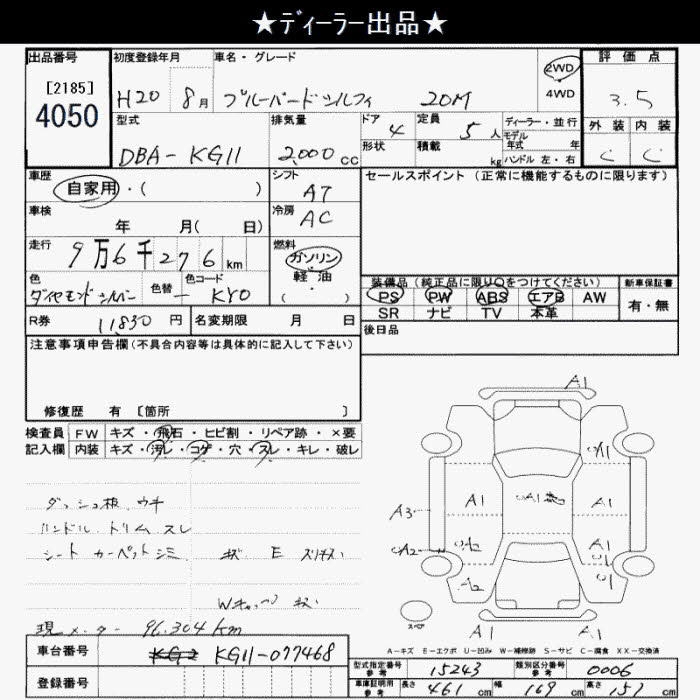 ★ディーラー出品★
出品番号
[2185]
4050
初度登録年月
H20 8月
車名・グレード
ブルーバードシルフィ 20M
2WD
4WD
評価点
3.5
型式
DBA-KG11
排気量
2,000cc
ドア 4
形状
定員 5人
積載 kg
ディーラー・並行
モデル年式 年
ハンドル 左・右
外装 内装
C C
車歴
自家用・( )
シフト
AT
セールスポイント (正常に機能するものに限ります)
車検
年 月( 日)
冷房
AC
走行
9万6千276km
燃料
ガソリン
軽油
( ・ )
色
ダイヤモンドシルバー
色替 ー
色コード
KY0
装備品 (純正品に限り〇をつけてください)
PS PW ABS エアB AW
SR ナビ TV 本革
新車保証書
有・無
R券 11830円
名変期限 月 日
後日品
注意事項申告欄(不具合内容等は具体的に記入して下さい)
修復歴 有 〔箇所 〕
検査員 FW キズ・飛石・ヒビ割・リペア跡・×要
記入欄 内装 キズ・汚レ・コゲ・穴・スレ・キレ・破レ
ダッシュ板 ウキ
ハンドル トリム スレ
シート カーペット シミ キズ E スリキズ
Wキャップ キズ
現メーター 96,304km
A1
A1
A1
A1
A1
A3
A1
A2
A2
A2
スペア
A-キズ E-エクボ U-凹み W-補修跡 S-サビ C-腐食 XX-交換済
車台番号 KG2 KG11-077468
登録番号
型式指定番号 参考 15243
類別区分番号 参考 0006
車庫証明用 参考 長さ 461cm 幅 169cm 高さ 151cm